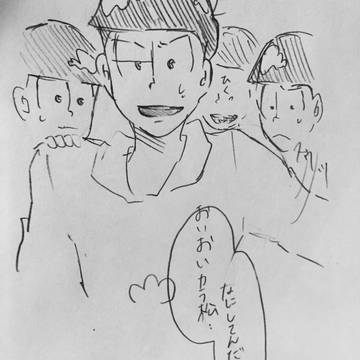 ひくっ
おいおいカラ松…
なにしてんだ